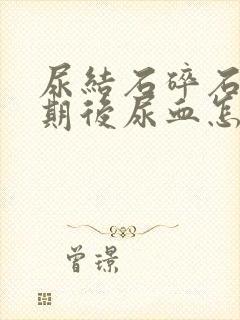 尿結石碎石
期後尿血怎
曾璟